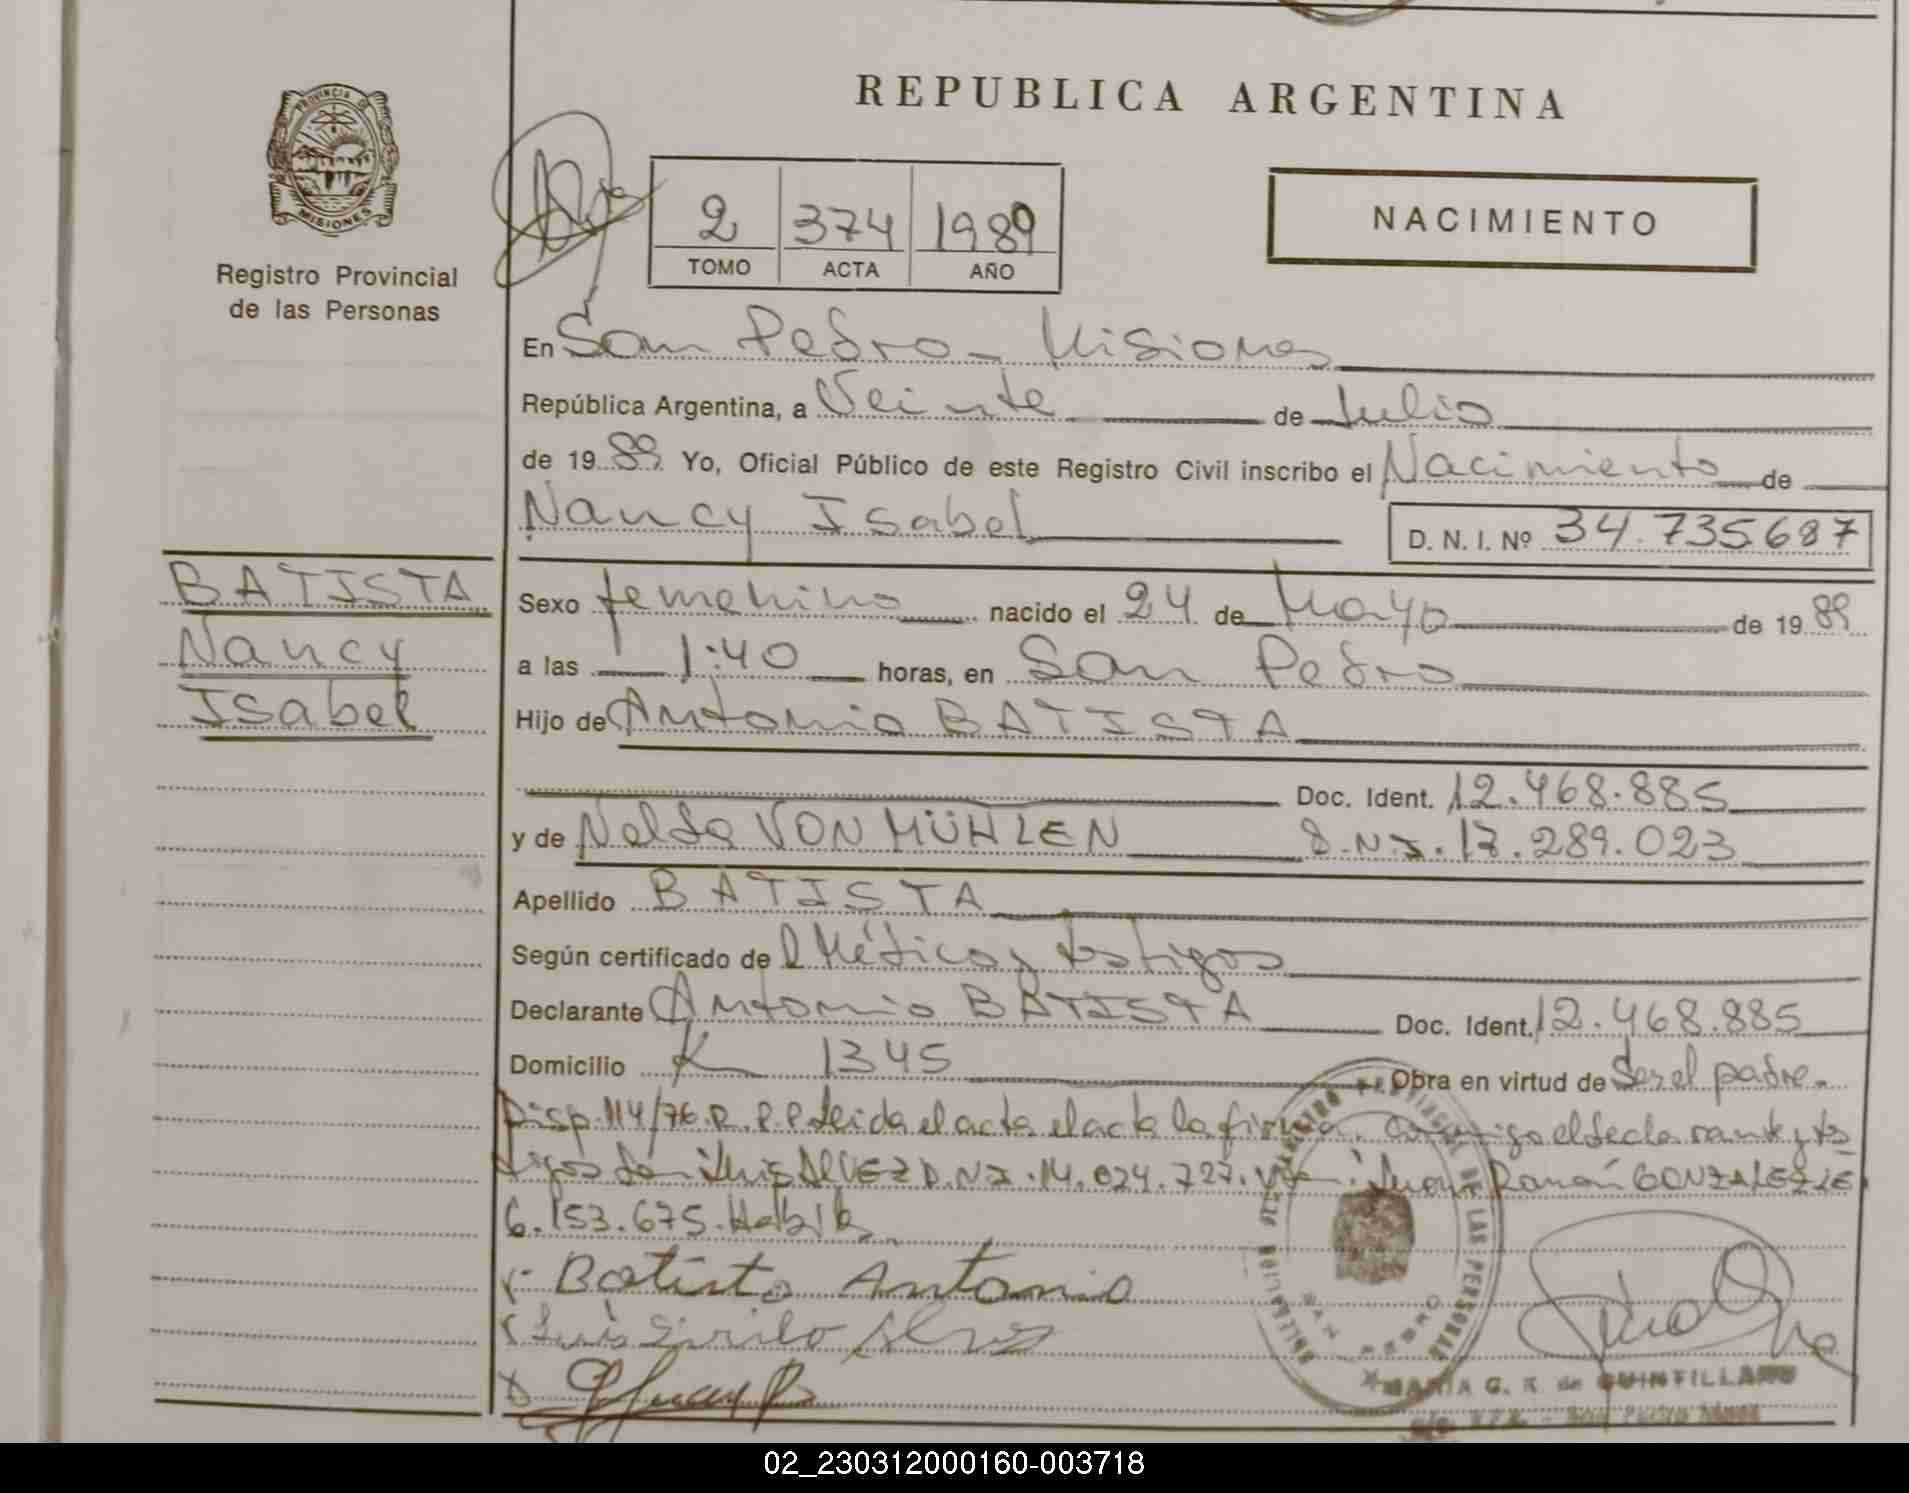 REPUBLICA ARGENTINA
PROVINCIA DE
MISIONES
Registro Provincial
de las Personas
2 374 1989
TOMO ACTA AÑO
NACIMIENTO
En San Pedro - Misiones
República Argentina, a Veinte de Julio
de 1989. Yo, Oficial Público de este Registro Civil inscribo el Nacimiento de
Nancy Isabel
D. N. I. Nº 34.735687
BATISTA
Nancy
Isabel
Sexo femenino nacido el 24 de Mayo de 1989
a las 1:40 horas, en San Pedro
Hijo de Antonio BATISTA
Doc. Ident. 12.468.885
y de Nelda VON MÜHLEN D.N.I. 17.289.023
Apellido BATISTA
Según certificado de l Médico y testigos
Declarante Antonio BATISTA Doc. Ident. 12.468.885
Domicilio K 1345
Obra en virtud de Ser el padre.
Disp. 114/76. R. P. P. Leida el acta el acta la firma conmigo el declarante y tes
tigos Son: Luis ALVEZ D.N.I. 14.024.727. Juan Ramón GONZALEZ LE
6.153.675. Habik
Batista Antonio
Luis Alves
REGISTRO PROVINCIAL DE LAS PERSONAS
SAN PEDRO
MARIA G. R. de QUINTILLANO
San Pedro Mnes
02_230312000160-003718